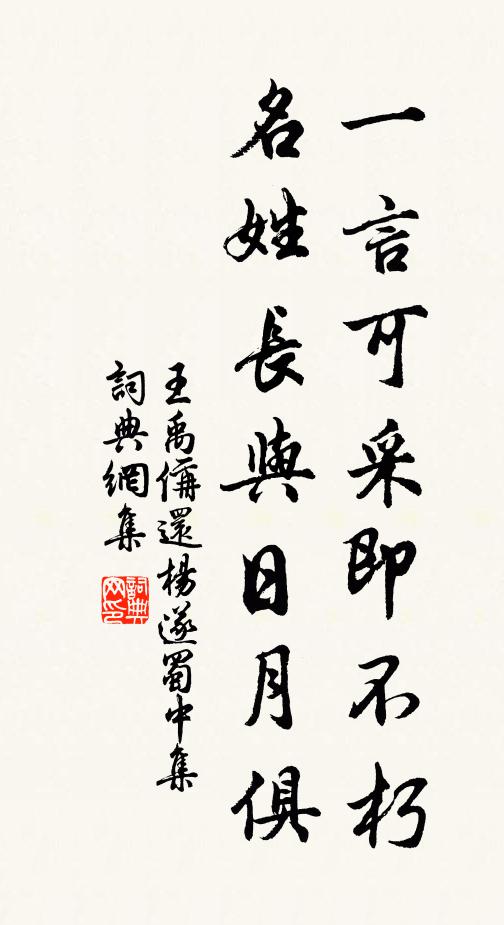 一言可采即不朽
名姓長與日月俱
王禹偁還楊遂蜀中集
詞典網集
詞典網印